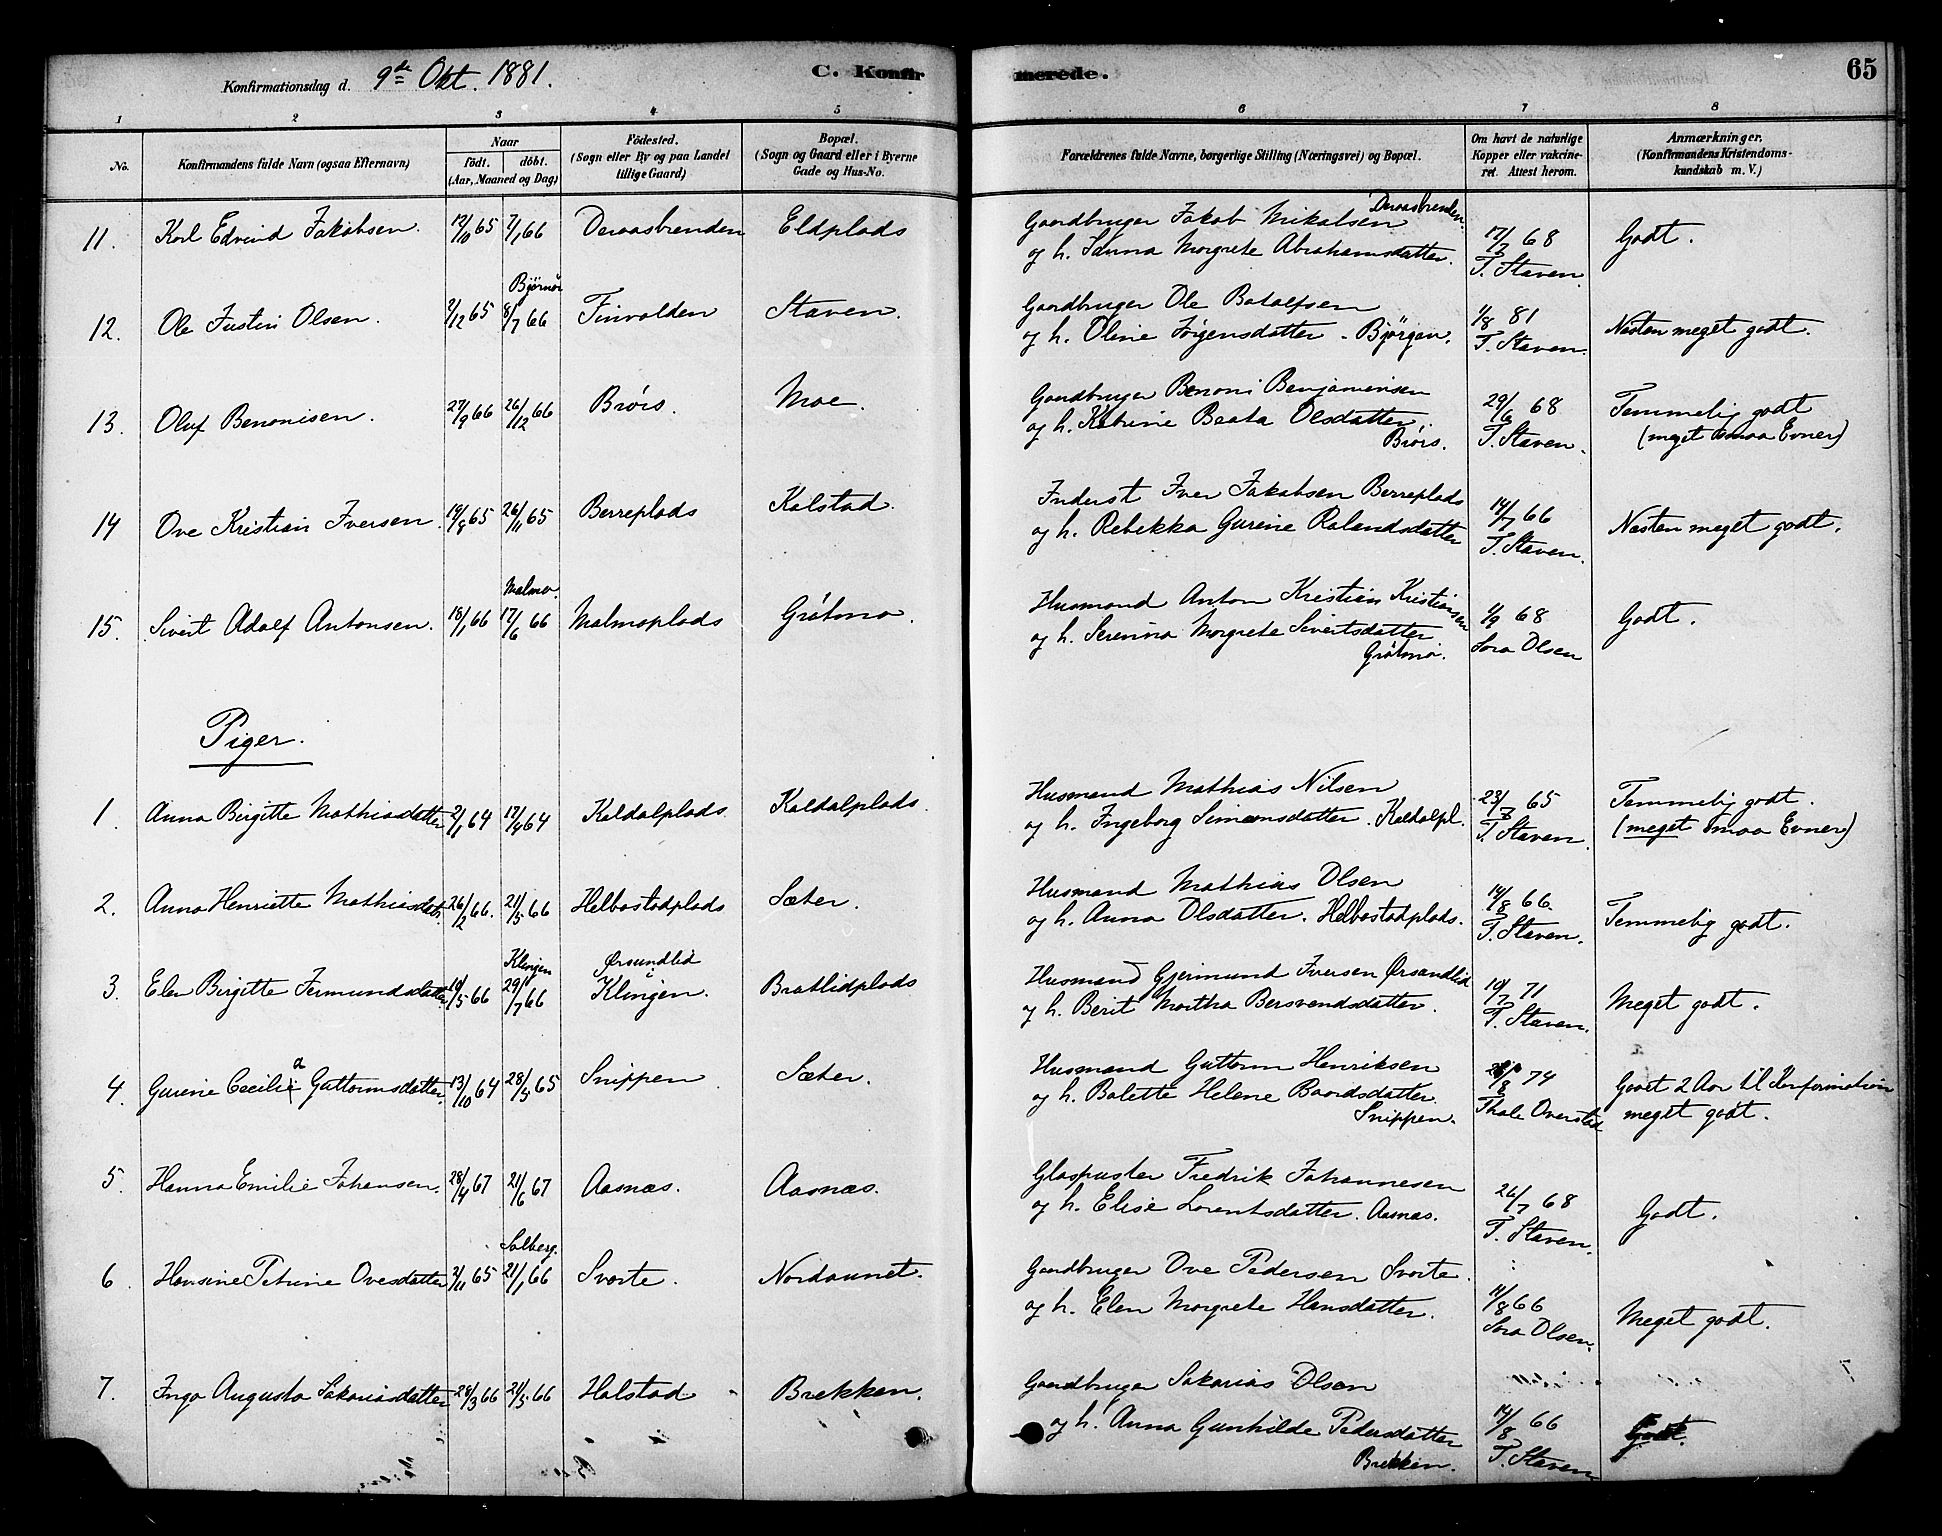 Konfirmationsdag d. 9de Okt. 1881.
C. Konfirmerede.
65
1 2 3 4 5 6 7 8
No.
Konfirmandens fulde Navn (ogsaa Efternavn)
Naar
födt. döbt.
(Aar, Maaned og Dag)
Födested.
(Sogn eller By og paa Landet
tillige Gaard)
Bopæl.
(Sogn og Gaard eller i Byerne
Gade og Hus-No.
Forældrenes fulde Navne, borgerlige Stilling (Næringsvei) og Bopæl.
Om havt de naturlige
Kopper eller vakcine-
ret. Attest herom.
Anmærkninger.
(Konfirmandens Kristendoms-
kundskab m. V.)
11. Karl Edvind Jakobsen. 12/10 65 7/1 66 Deraasbrenden Eldplads
Gaardbruger Jakob Mikalsen Deraasbrenden.
og h. Sanna Margrete Abrahamsdatter.
17/7 68
T. Staven.
Godt.
12. Ole Justin Olsen. 2/12 65 Bjørnør 8/7 66 Finvolden Staven.
Gaardbruger Ole Botolfsen
og h. Oline Jørgensdatter. Bjørgan.
1/8 81
T. Staven.
Næsten meget godt.
13. Oluf Benonisen. 27/9 66 26/12 66 Brörs. Moe.
Gaardbruger Benoni Benjaminsen
og h. Katrine Beata Olsdatter.
Brörs.
29/6 68
T. Staven.
Temmelig godt
(meget smaa Evner)
14 Ove Kristian Iversen. 19/8 65 26/11 65 Berreplads Kalstad.
Inderst Iver Jakobsen Berreplads
og h. Rebekka Gurine Rolandsdatter
14/7 66
T. Staven.
Næsten meget godt.
15. Sivert Adolf Antonsen. 18/1 66 Malmo. 17/6 66 Malmoplads Gråtmo.
Husmand Anton Kristian Kristiansen
og h. Serenina Margrete Sivertsdatter
Gråtmo.
1/9 68
Sara Olsen
Godt.
Piger.
1. Anna Birgitte Mathiasdatter 2/1 64 17/4 64 Kaldalplads. Kaldalplads.
Husmand Mathias Nilsen
og h. Ingeborg Simonsdatter. Kaldalpl.
23/7 65
T. Staven.
Temmelig godt.
(meget smaa Evner)
2. Anna Henriette Mathiasdatr. 26/2 66. 21/5 66 Helbostadplads Sæter.
Husmand Mathias Olsen
og h. Anna Olsdatter. Helbostadplads.
14/8 66.
T. Staven.
Temmelig godt.
3. Elen Birgitte Jermundsdatter 10/5 66 Klingen 29/7 66 Ørsundlid i Klingen. Bratlidplads
Husmand Gjermund Iversen Ørsandlid
og h. Berit Martha Bersvendsdatter.
19/7 71
T. Staven.
Meget godt.
4. Gurine Cecilia Guttormsdatter. 13/10 64 28/5 65 Snippen. Sæter.
Husmand Guttorm Henriksen
og h. Bolette Helene Baardsdatter.
Snippen.
/8 74
Thale Overstad
Gaaet 2 Aar til Konfirmation
meget godt.
5. Hanna Emilie Johansen. 28/4 67 21/6 67 Aasnæs. Aasnæs.
Glaspuster Fredrik Johannesen
og h. Elise Lorentsdatter. Aasnæs.
26/7 68
T. Staven.
Godt.
6. Hansine Petrine Ovesdatter 2/11 65 Solberg. 21/1 66 Svarte. Nordaunet.
Gaardbruger Ove Pedersen Svarte.
og h. Elen Margrete Hansdatter.
11/8 66
Sara Olsen.
Meget godt.
7. Inga Augusta Sakariasdatter 28/3 66 21/5 66 Holstad Brekken.
Gaardbruger Sakarias Olsen
og h. Anna Gunhilde Pedersdatter
Brekken.
14/8 66
T. Staven
Godt.